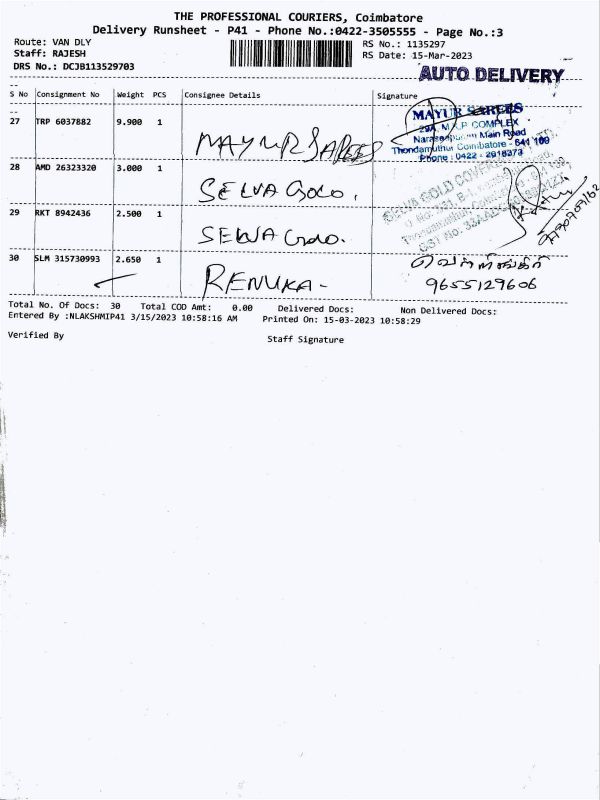 THE PROFESSIONAL COURIERS, Coimbatore
Delivery Runsheet - P41 - Phone No.:0422-3505555 - Page No.:3
Route: VAN DLY
Staff: RAJESH
DRS No.: DCJB113529703
RS No.: 1135297
RS Date: 15-Mar-2023
AUTO DELIVERY
S No Consignment No Weight PCS Consignee Details Signature
27 TRP 6037882 9.900 1 MAYUR SAREES
MAYUR SAREES
29A, M.A.P. COMPLEX
Narasapuram Main Road
Thondamuthur Coimbatore - 641 109
Phone : 0422 - 2618373
28 AMD 26323320 3.000 1 SELVA GOLD.
SELVA GOLD COVERING
29 RKT 8942436 2.500 1 SELVA GOLD.
30 SLM 315730993 2.650 1 RENUKA-
9655129606
Total No. Of Docs: 30 Total COD Amt: 0.00 Delivered Docs: Non Delivered Docs:
Entered By :NLAKSHMIP41 3/15/2023 10:58:16 AM Printed On: 15-03-2023 10:58:29
Verified By Staff Signature